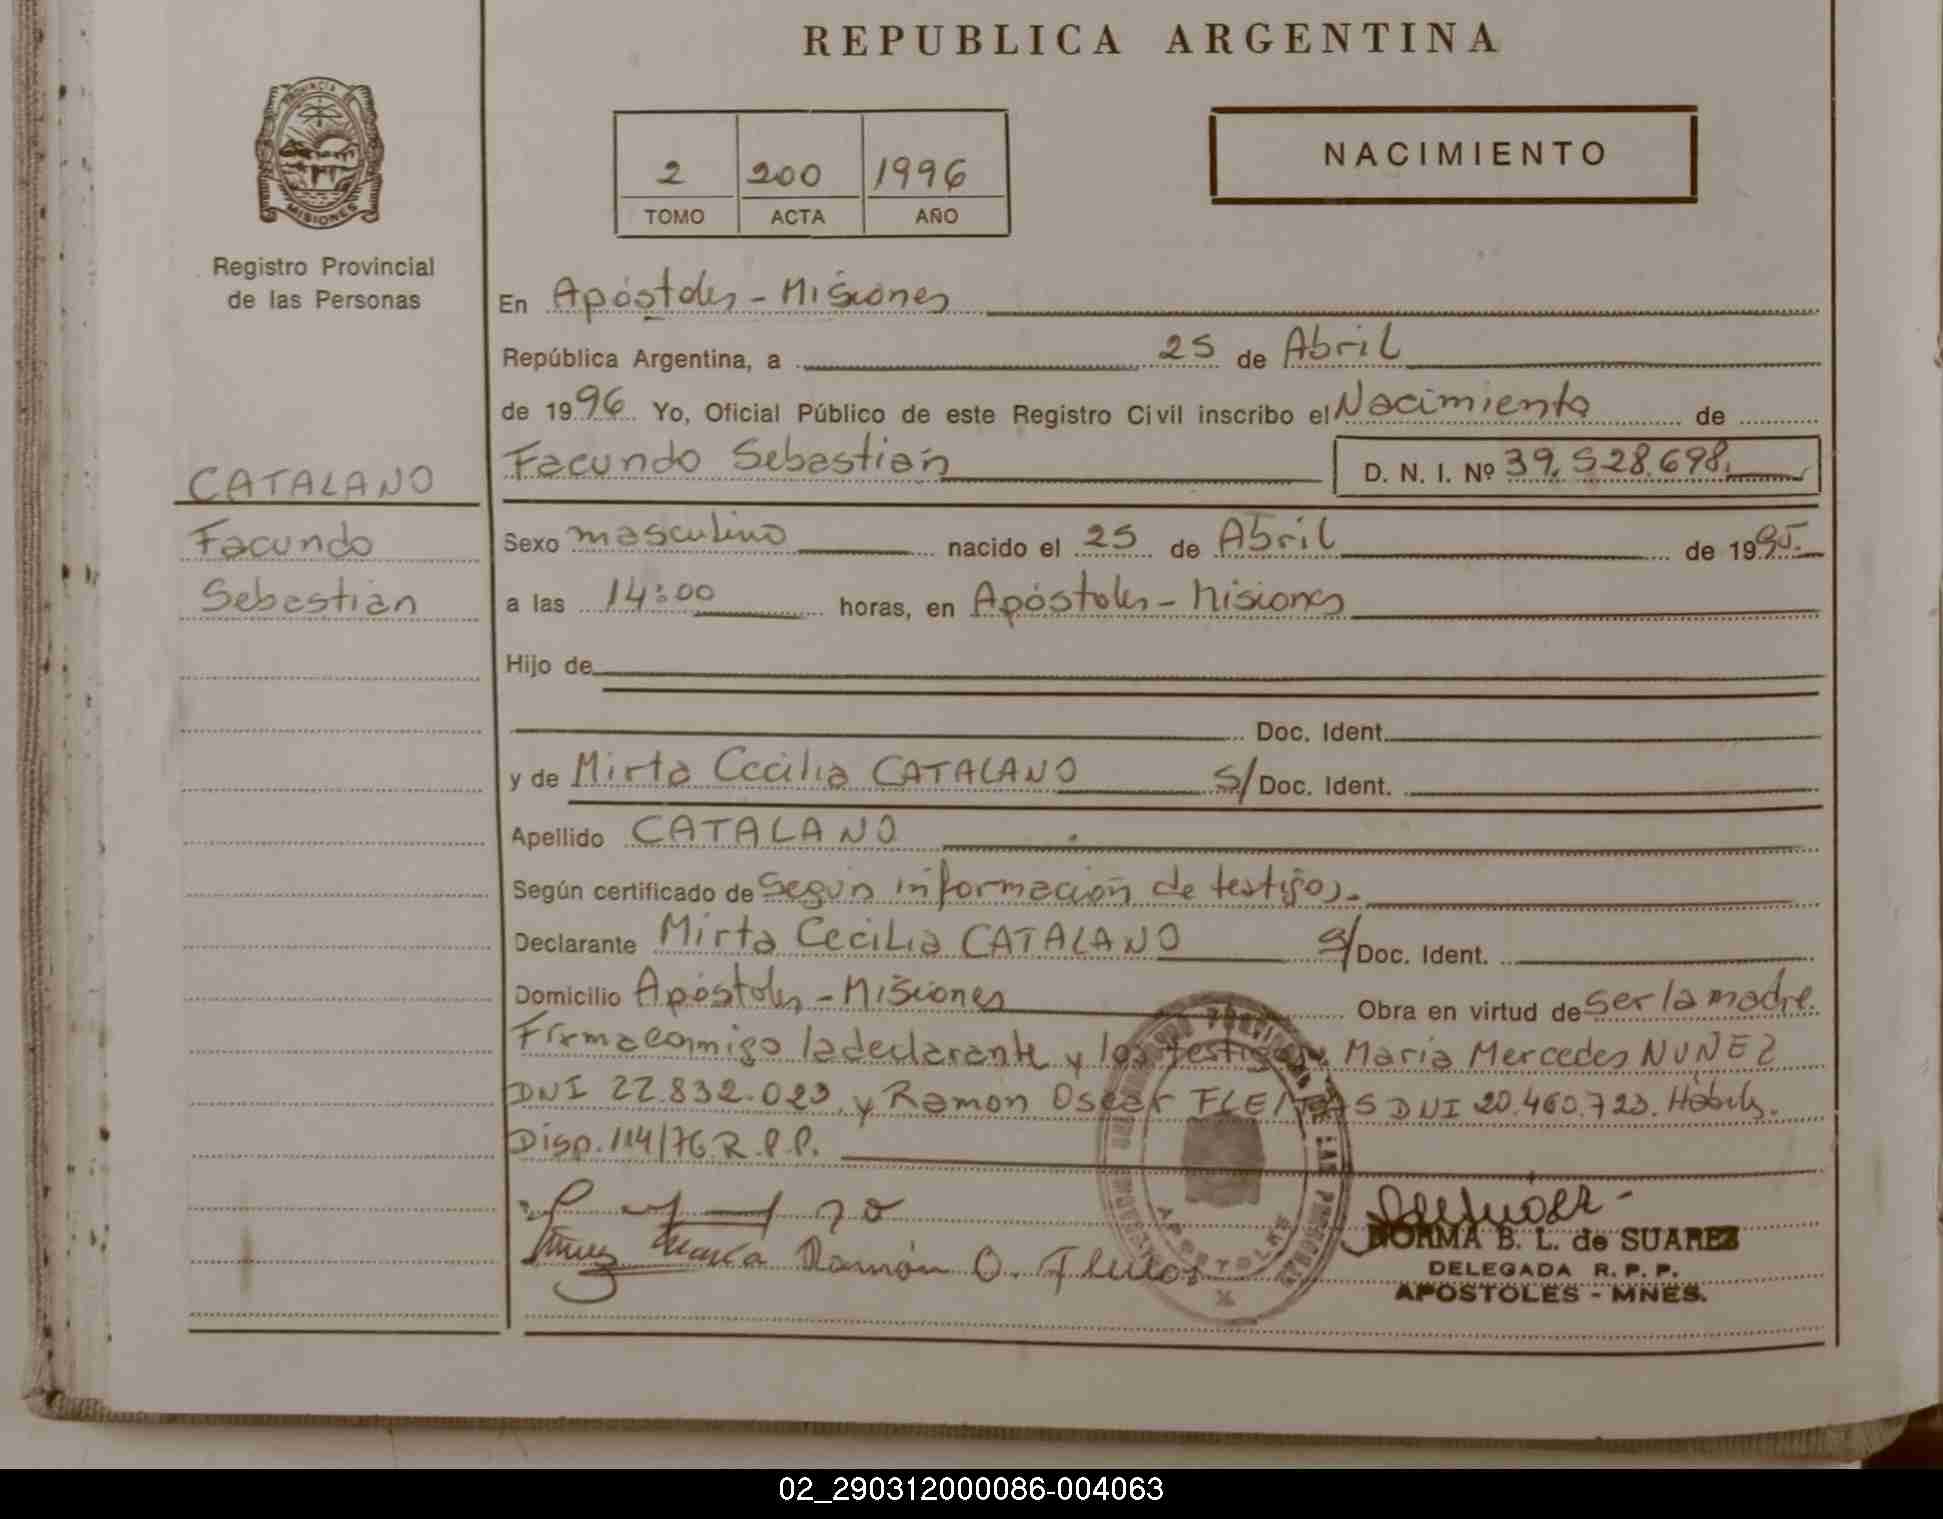 REPUBLICA ARGENTINA
PROVINCIA DE
MISIONES
Registro Provincial
de las Personas
2 200 1996
TOMO ACTA AÑO
NACIMIENTO
En Apóstoles - Misiones
República Argentina, a 25 de Abril
de 1996 Yo, Oficial Público de este Registro Civil inscribo el Nacimiento de
CATALANO
Facundo
Sebastián
Facundo Sebastián D. N. I. Nº 39.528.698.
Sexo masculino nacido el 25 de Abril de 1995.
a las 14:00 horas, en Apóstoles - Misiones
Hijo de
Doc. Ident.
y de Mirta Cecilia CATALANO S/ Doc. Ident.
Apellido CATALANO
Según certificado de Según información de testigos.
Declarante Mirta Cecilia CATALANO S/ Doc. Ident.
Domicilio Apóstoles - Misiones Obra en virtud de ser la madre.
Firma conmigo la declarante y los testigos María Mercedes NUÑEZ
DNI 22.832.023 y Ramon Oscar FLEITAS DNI 20.460.723. Hábils.
Disp. 114/76 R.P.P.
Ramón O.
APOSTOLES
NORMA B. L. de SUAREZ
DELEGADA R. P. P.
APOSTOLES - MNES.
02_290312000086-004063